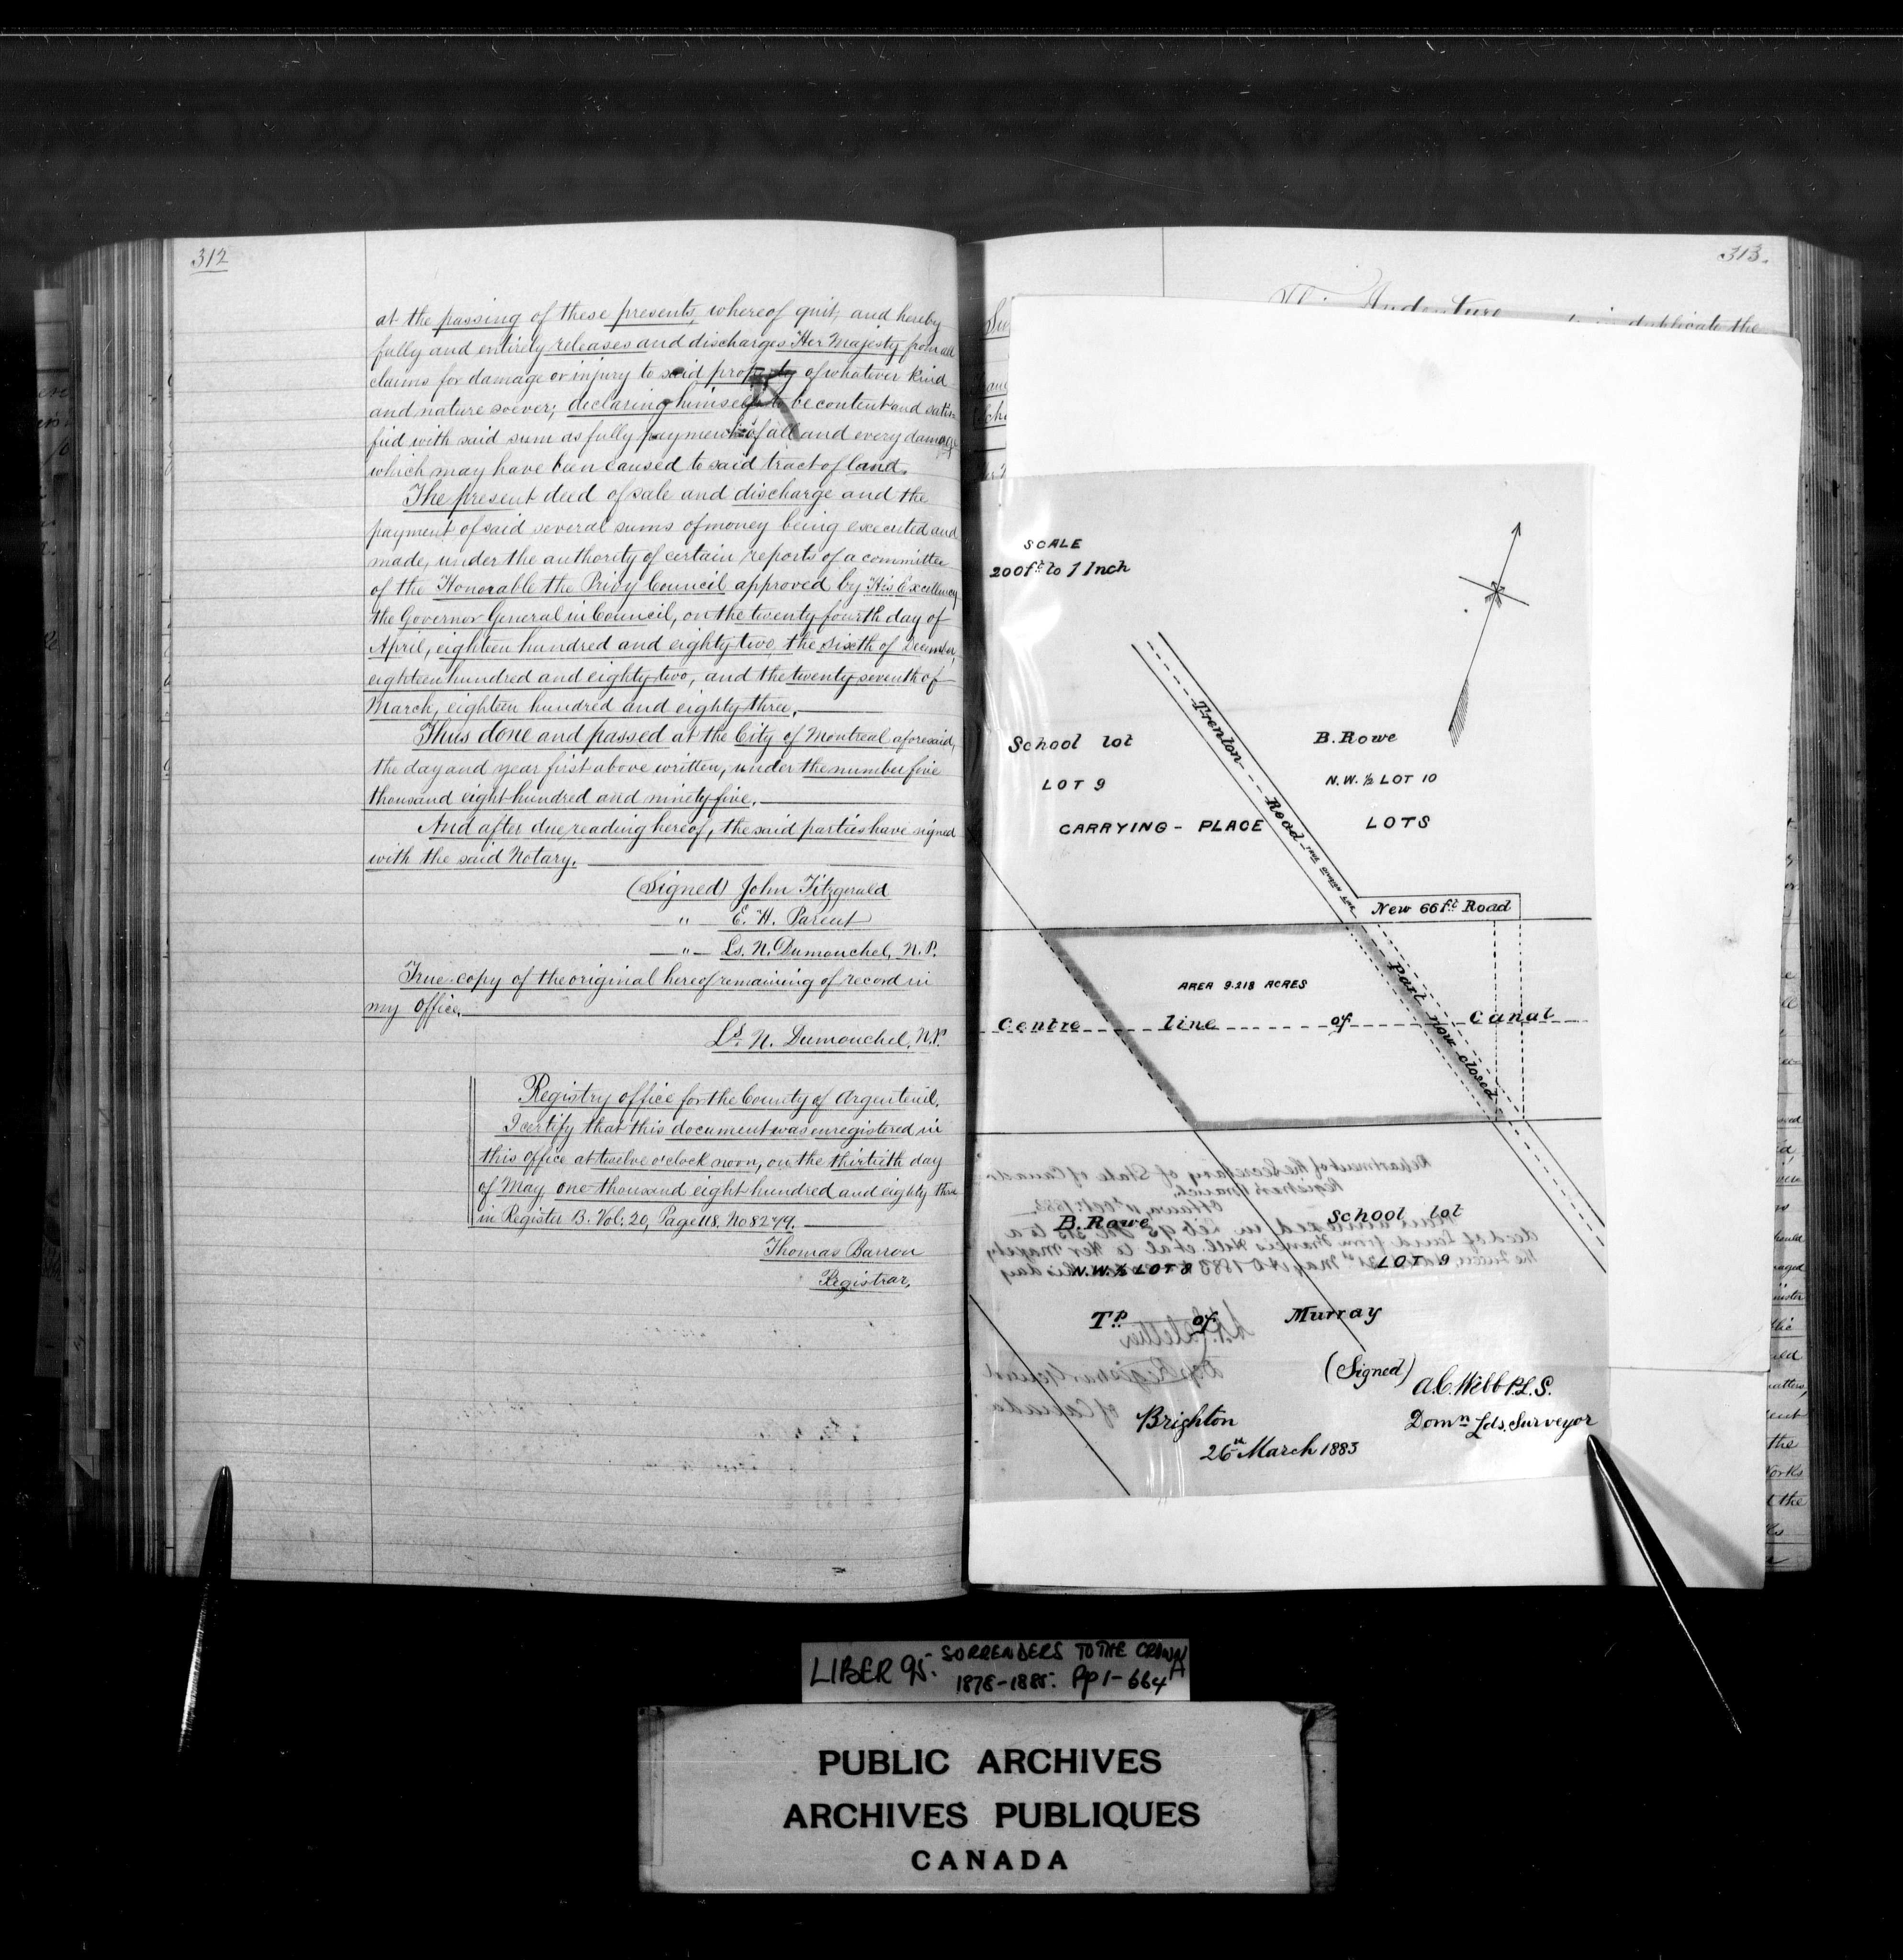 312
at the passing of these presents, whereof quit, and hereby
fully and entirely releases and discharges Her Majesty from all
claims for damage or injury to said property of whatever kind
and nature soever; declaring himself to be content and satis-
fied with said sum as fully payment of all and every damage
which may have been caused to said tract of land.
The present deed of sale and discharge and the
payment of said several sums of money being executed and
made, under the authority of certain reports of a committee
of the Honorable the Privy Council approved by His Excellency
the Governor General in Council, on the twenty fourth day of
April, eighteen hundred and eighty two, the sixth of December,
eighteen hundred and eighty two, and the twenty seventh of
March, eighteen hundred and eighty three.
Thus done and passed at the City of Montreal aforesaid,
the day and year first above written, under the number five
thousand eight hundred and ninety five.
And after due reading hereof, the said parties have signed
with the said Notary.
(Signed) John Fitzgerald
" E. H. Parent
" Ls. N. Dumouchel, N.P.
True copy of the original hereof remaining of record in
my office.
Ls. N. Dumouchel, N.P.
Registry office for the County of Argenteuil.
I certify that this document was enregistered in
this office at twelve o'clock noon, on the thirtieth day
of May, one thousand eight hundred and eighty three
in Register B. Vol: 20, Page 118. No 8279.
Thomas Barron
Registrar,
313.
This Indenture made in duplicate the
SCALE
200 ft to 1 Inch
Trenton Road
School lot
B. Rowe
LOT 9
N.W. ½ LOT 10
CARRYING - PLACE LOTS
New 66 ft Road
AREA 9.218 ACRES
Part now closed
Centre line of Canal
Department of the Secretary of State of Canada
Registrar's Branch,
Ottawa, Oct. 1883.
B. Rowe
School lot
N.W. ½ LOT 8
LOT 9
Tp of Murray
(Signed) A.C. Webb P.L.S.
Domn Lds. Surveyor
Brighton
26th March 1883
LIBER 95. SURRENDERS TO THE CROWN
1878-1885. Pp 1-664A
PUBLIC ARCHIVES
ARCHIVES PUBLIQUES
CANADA